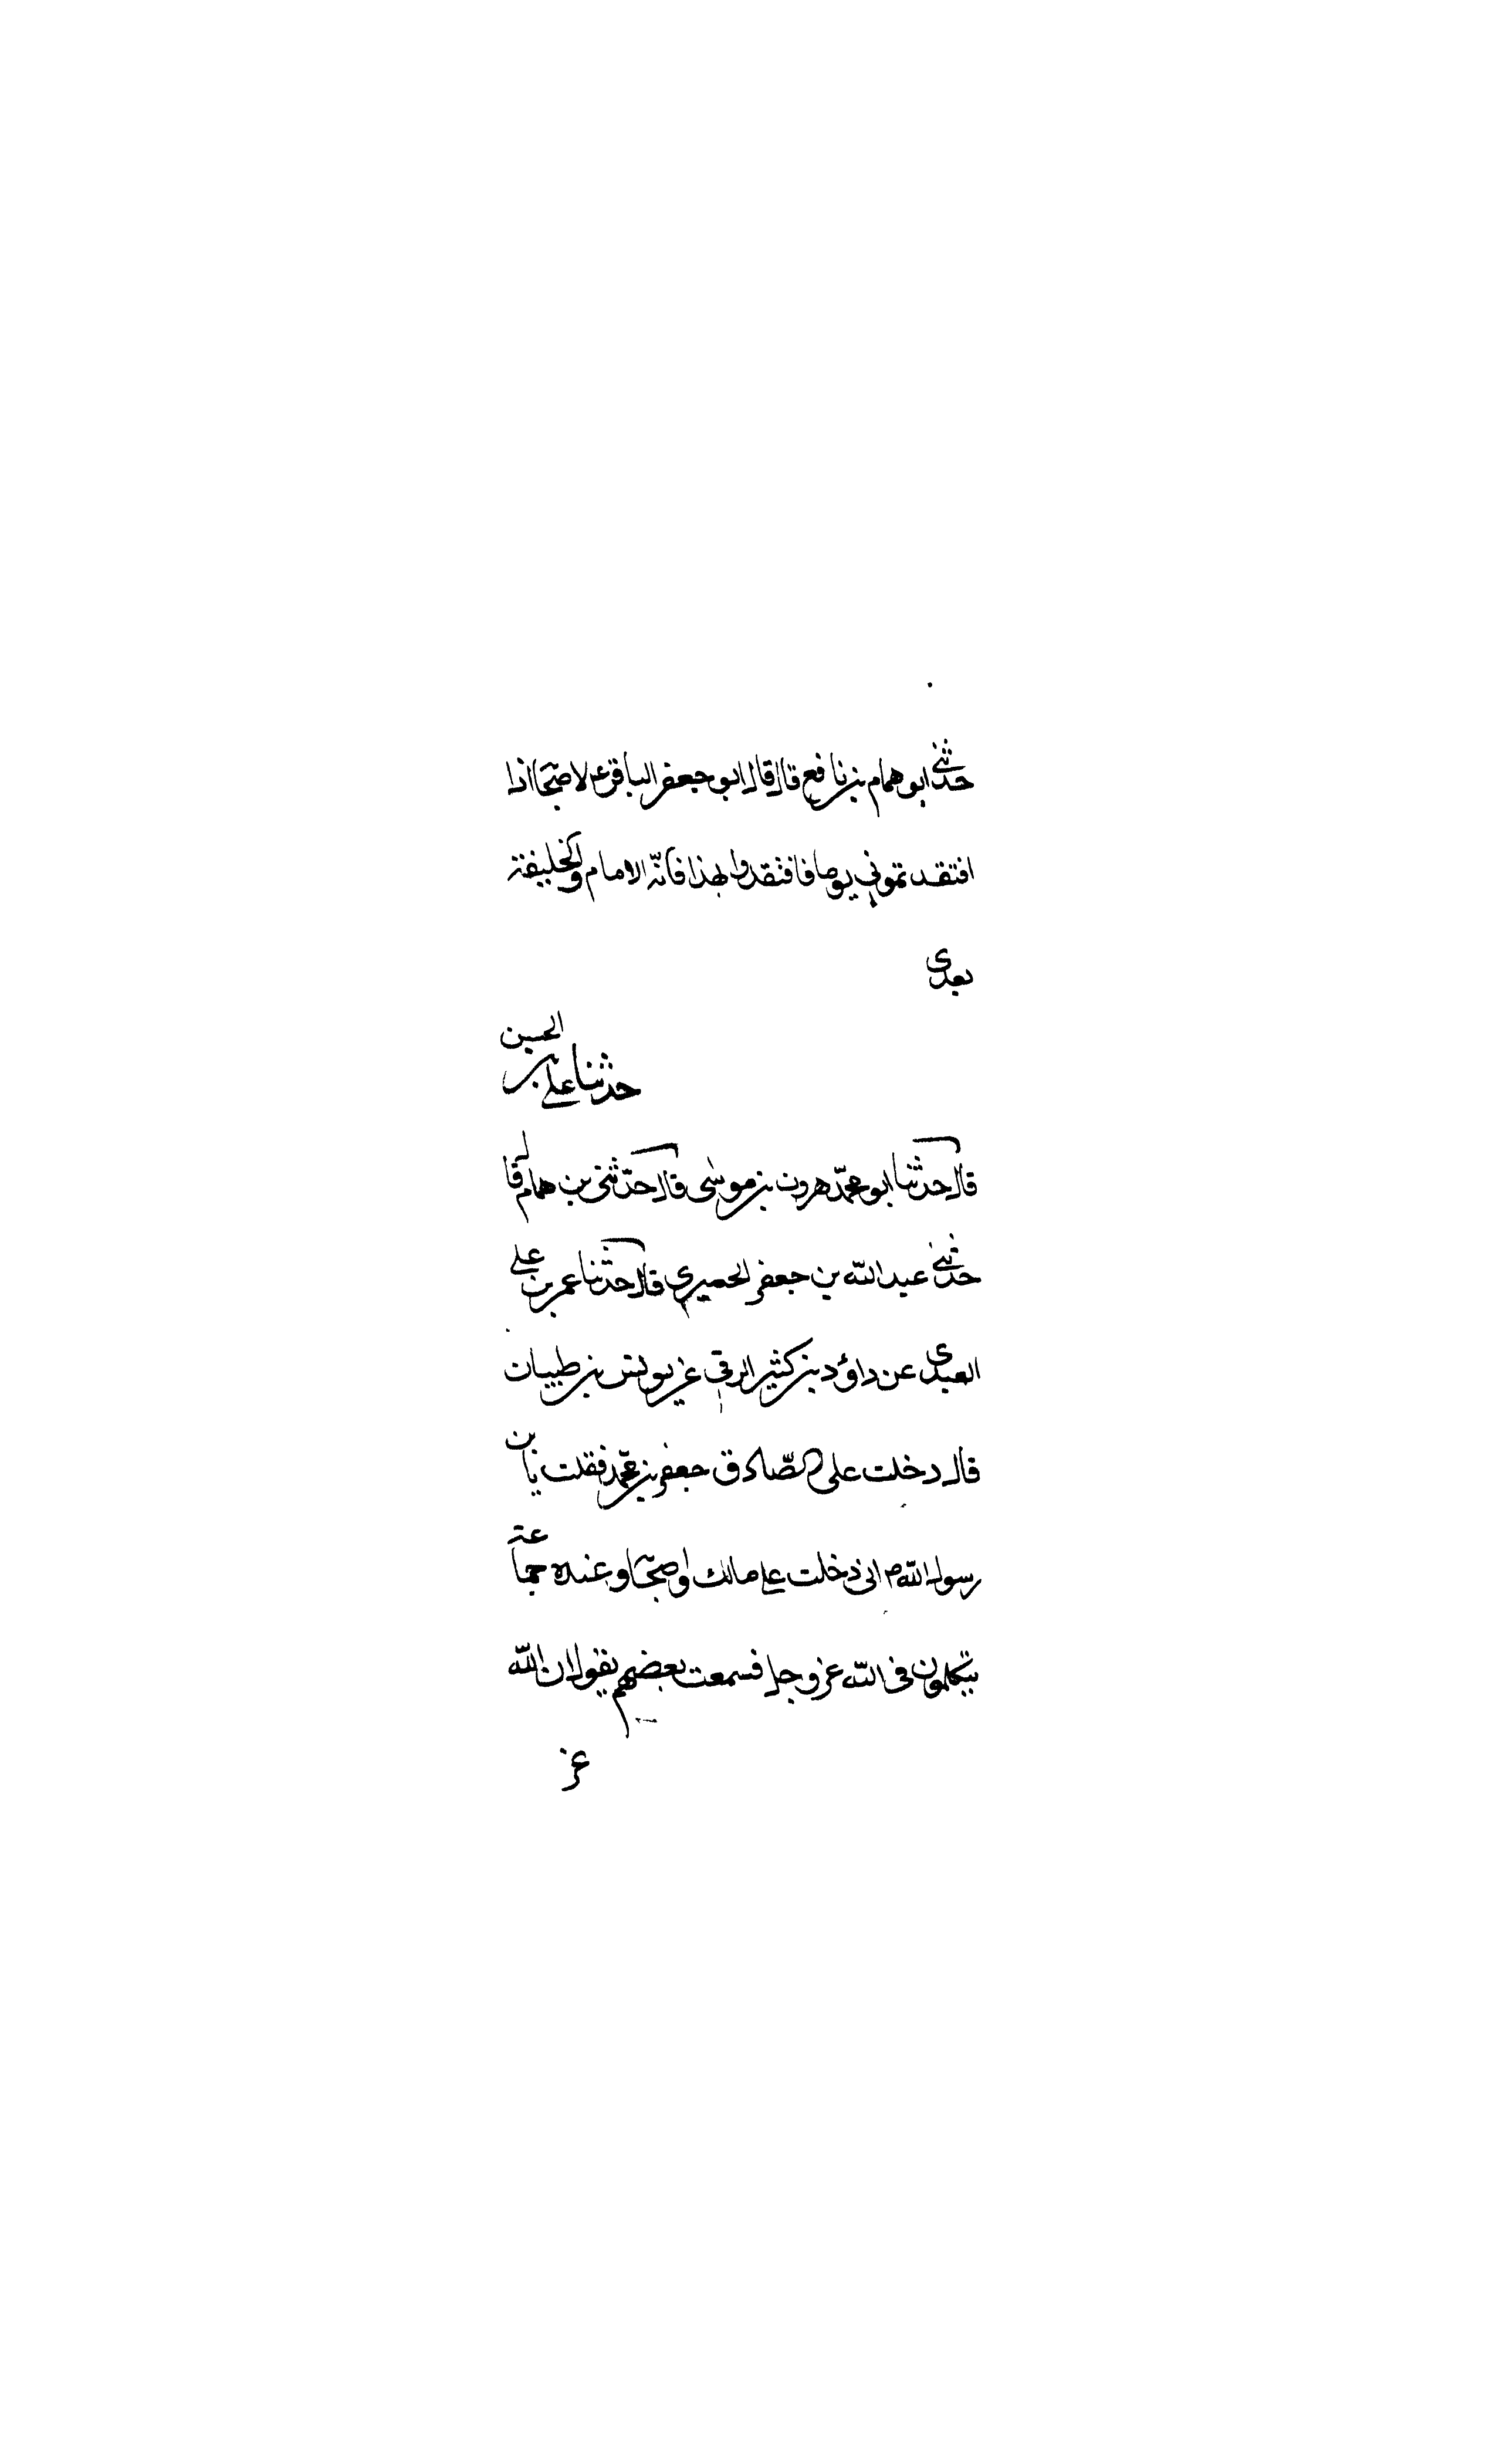 حدثني ابو همام بن نافع قال قال ابو جعفر الباقر ع لاصحابه اذا
افتقدتموني يوما فافتقدوا لهذا فانّه الامام والخليفة
بعدي
حدثنا علي بن الحسين
قال حدثنا ابو محمّد هرون بن موسى قال حدّثني بن همام قال
حدثني عبد الله بن جعفر الحميري قال حدثنا عمر بن علي
العبدي عن داؤد بن كثير الرقي عن يونس بن طبيان
قال دخلت على الصّادق جعفر بن محمّد فقلت يا بن
رسول الله ص اني دخلت علي مالك واصحابه وعنده جماعة
يتكلمون في الله عز وجل فسمعت بعضهم يقول ان الله
عز